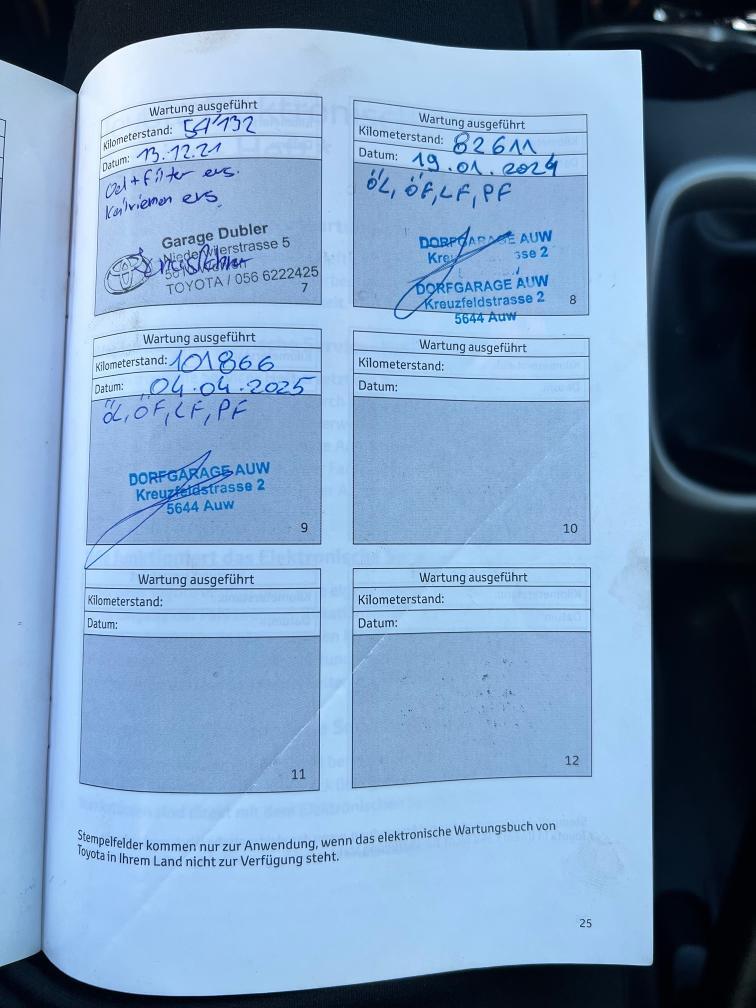 Wartung ausgeführt
Kilometerstand: 54'132
Datum: 13.12.21
Oel + Filter ers.
Keilriemen ers
Garage Dubler
Niederwilerstrasse 5
TOYOTA / 056 6222425
7
Wartung ausgeführt
Kilometerstand: 82611
Datum: 19.01.2024
ÖL, ÖF, LF, PF
DORFGARAGE AUW
sse 2
DORFGARAGE AUW
Kreuzfeldstrasse 2
5644 Auw
8
Wartung ausgeführt
Kilometerstand: 101866
Datum: 04.04.2025
ÖL, ÖF, LF, PF
DORFGARAGE AUW
Kreuzfeldstrasse 2
5644 Auw
9
Wartung ausgeführt
Kilometerstand:
Datum:
10
Wartung ausgeführt
Kilometerstand:
Datum:
11
Wartung ausgeführt
Kilometerstand:
Datum:
12
Stempelfelder kommen nur zur Anwendung, wenn das elektronische Wartungsbuch von
Toyota in Ihrem Land nicht zur Verfügung steht.
25